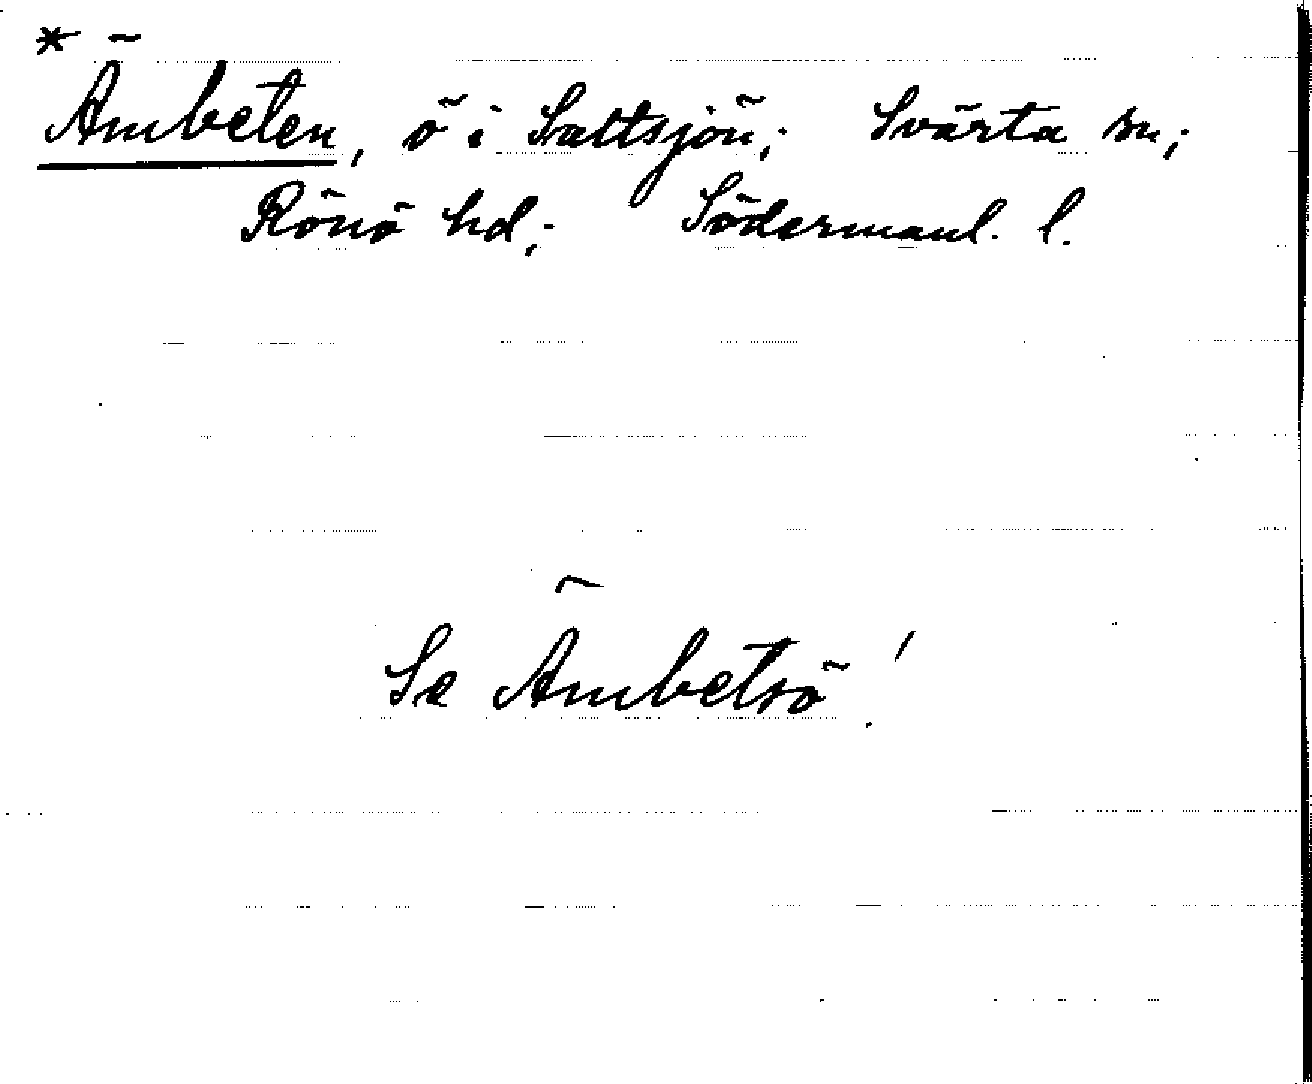 * Ämbeten, ö i Saltsjön; Svärta sn;
Rönö hd; Södermanl. l.
Se Ämbetsö!